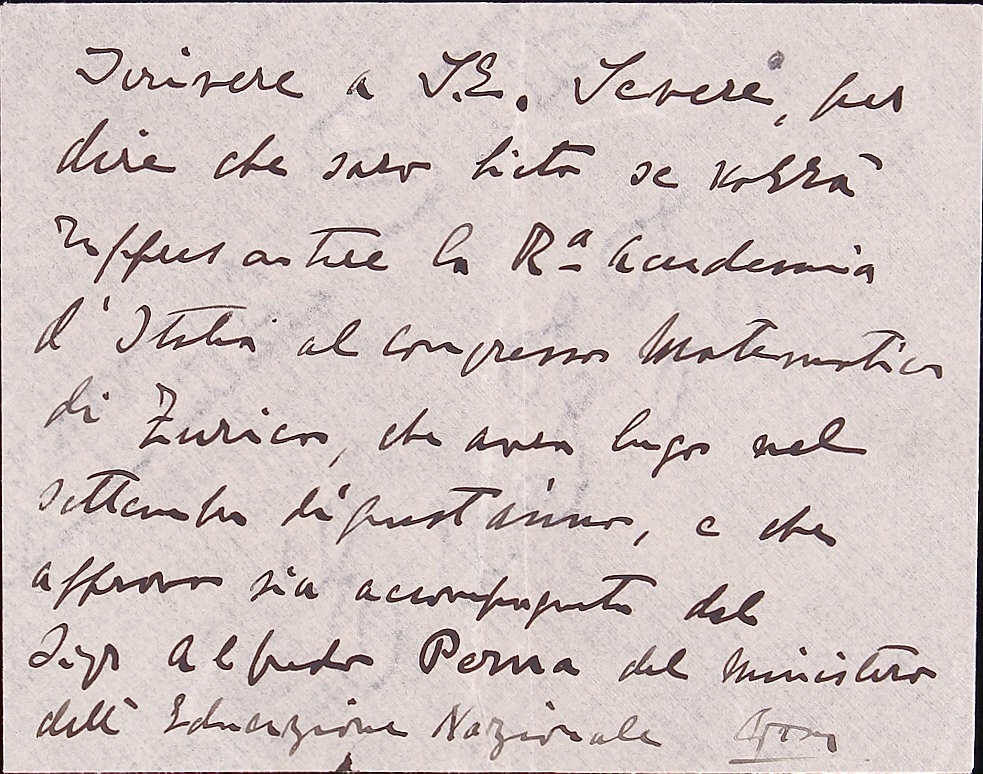 Scrivere a S.E. Severi, per
dire che sarò lieto se vorrà
rappresentare la R.a Accademia
d'Italia al Congresso Matematico
di Zurico, che avrà luogo nel
settembre di quest'anno, e che
approvo sia accompagnato dal
Sigr Alfredo Perna del Ministero
dell'Educazione Nazionale